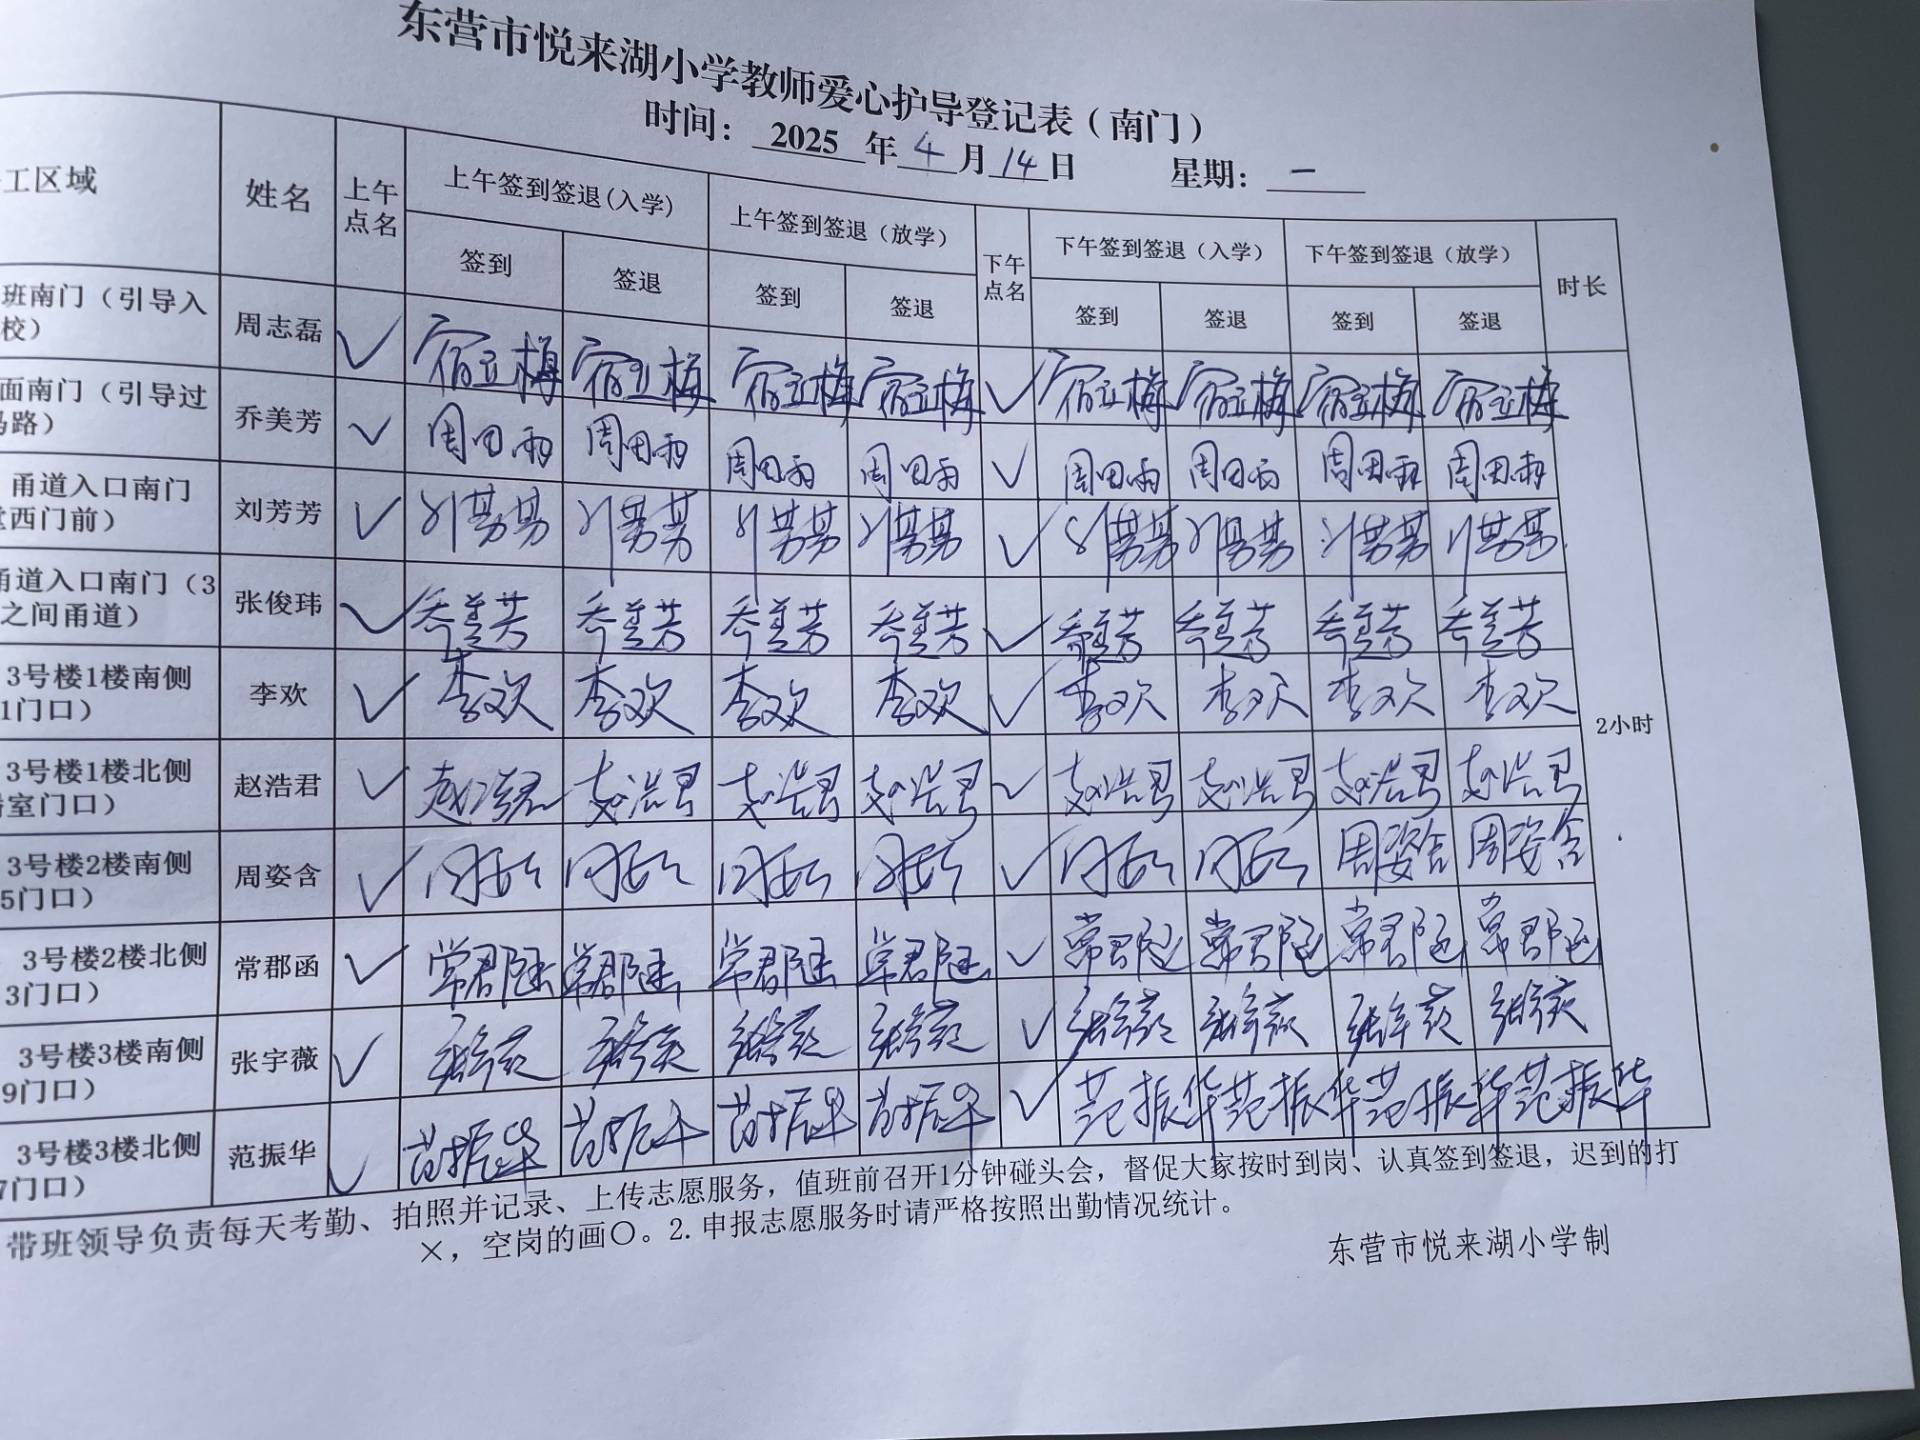 东营市悦来湖小学教师爱心护导登记表（南门）
时间： 2025 年 4 月 14 日 星期： 一
工区域 姓名 上午点名 上午签到签退(入学) 上午签到签退（放学） 下午点名 下午签到签退（入学） 下午签到签退（放学） 时长
签到 签退 签到 签退 签到 签退 签到 签退
班南门（引导入
校） 周志磊 ✓ 宿立梅 宿立梅 宿立梅 宿立梅 ✓ 宿立梅 宿立梅 宿立梅 宿立梅
面南门（引导过
马路） 乔美芳 ✓ 周田雨 周田雨 周田雨 周田雨 ✓ 周田雨 周田雨 周田雨 周田雨
甬道入口南门
西门前） 刘芳芳 ✓ 刘芳芳 刘芳芳 刘芳芳 刘芳芳 ✓ 刘芳芳 刘芳芳 刘芳芳 刘芳芳
甬道入口南门（3
之间甬道） 张俊玮 ✓ 乔美芳 乔美芳 乔美芳 乔美芳 ✓ 乔美芳 乔美芳 乔美芳 乔美芳
3号楼1楼南侧
1门口） 李欢 ✓ 李欢 李欢 李欢 李欢 ✓ 李欢 李欢 李欢 李欢
2小时
3号楼1楼北侧
室门口） 赵浩君 ✓ 赵浩君 赵浩君 赵浩君 赵浩君 ✓ 赵浩君 赵浩君 赵浩君 赵浩君
3号楼2楼南侧
5门口） 周姿含 ✓ ✓ 周姿含 周姿含
3号楼2楼北侧
3门口） 常郡函 ✓ 常郡函 常郡函 常郡函 常郡函 ✓ 常郡函 常郡函 常郡函 常郡函
3号楼3楼南侧
9门口） 张宇薇 ✓ 张宇薇 张宇薇 张宇薇 张宇薇 ✓ 张宇薇 张宇薇 张宇薇 张宇薇
3号楼3楼北侧
7门口） 范振华 ✓ 范振华 范振华 范振华 范振华 ✓ 范振华 范振华 范振华 范振华
带班领导负责每天考勤、拍照并记录、上传志愿服务，值班前召开1分钟碰头会，督促大家按时到岗、认真签到签退，迟到的打
×，空岗的画〇。2.申报志愿服务时请严格按照出勤情况统计。
东营市悦来湖小学制